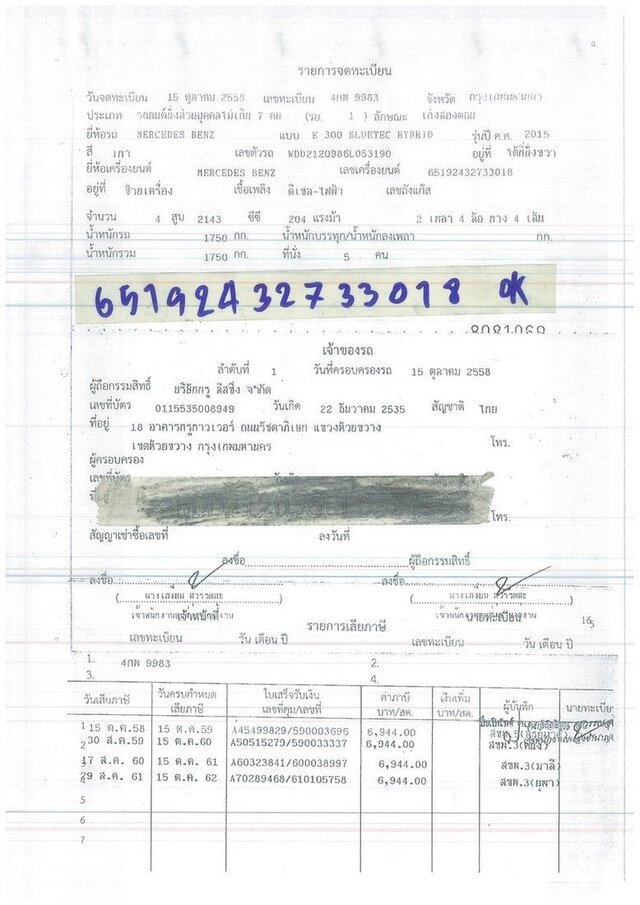 รายการจดทะเบียน
วันจดทะเบียน 15 ตุลาคม 2558 เลขทะเบียน 4กพ 9983 จังหวัด กรุงเทพมหานคร
ประเภท รถยนต์นั่งส่วนบุคคลไม่เกิน 7 คน (รย. 1 ) ลักษณะ เก๋งสองตอน
ยี่ห้อรถ MERCEDES BENZ แบบ E 300 BLUETEC HYBRID รุ่นปี ค.ศ. 2015
สี เทา เลขตัวรถ WDD2120986L053190 อยู่ที่ ใต้ที่นั่งขวา
ยี่ห้อเครื่องยนต์ MERCEDES BENZ เลขเครื่องยนต์ 65192432733018
อยู่ที่ ซ้ายเครื่อง เชื้อเพลิง ดีเซล-ไฟฟ้า เลขถังแก๊ส
จำนวน 4 สูบ 2143 ซีซี 204 แรงม้า 2 เพลา 4 ล้อ ยาง 4 เส้น
น้ำหนักรถ 1750 กก. น้ำหนักบรรทุก/น้ำหนักลงเพลา กก.
น้ำหนักรวม 1750 กก. ที่นั่ง 5 คน
65192432733018 OK
8081069
เจ้าของรถ
ลำดับที่ 1 วันที่ครอบครองรถ 15 ตุลาคม 2558
ผู้ถือกรรมสิทธิ์ บริษัททรู ลีสซิ่ง จำกัด
เลขที่บัตร 0115535008949 วันเกิด 22 ธันวาคม 2535 สัญชาติ ไทย
ที่อยู่ 18 อาคารทรูทาวเวอร์ ถนนรัชดาภิเษก แขวงห้วยขวาง
เขตห้วยขวาง กรุงเทพมหานคร โทร.
ผู้ครอบครอง
เลขที่บัตร วันเกิด สัญชาติ
ที่อยู่ โทร.
สัญญาเช่าซื้อเลขที่ ลงวันที่
ลงชื่อ ผู้ถือกรรมสิทธิ์
ลงชื่อ ลงชื่อ
เจ้าหน้าที่ นายทะเบียน
165
รายการเสียภาษี
เลขทะเบียน วัน เดือน ปี เลขทะเบียน วัน เดือน ปี
1. 4กพ 9983 2.
3. 4.
วันเสียภาษี วันครบกำหนดเสียภาษี ใบเสร็จรับเงิน เลขที่คุม/เลขที่ ค่าภาษี บาท/สต. เงินเพิ่ม บาท/สต. ผู้บันทึก นายทะเบียน
1 15 ต.ค.58 15 ต.ค.59 A45499829/590003696 6,944.00
2 30 ส.ค.59 15 ต.ค.60 A50515279/590033337 6,944.00 สขพ.3
17 ส.ค. 60 15 ต.ค. 61 A60323841/600038997 6,944.00 สขพ.3(มาลี)
29 ส.ค. 61 15 ต.ค. 62 A70289468/610105758 6,944.00 สขพ.3(ยุพา)
5
6
7